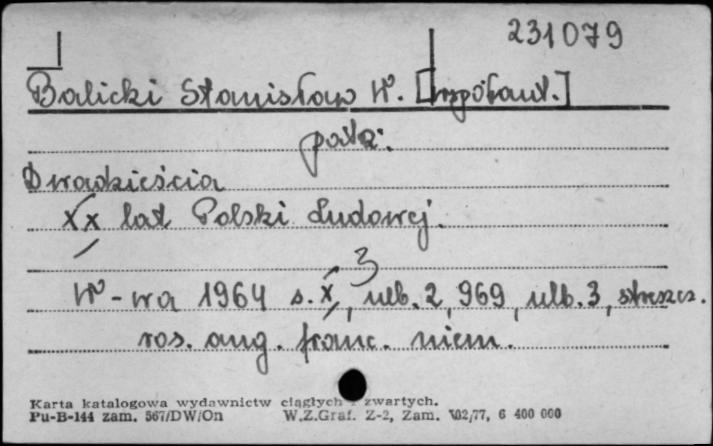 231079
Balicki Stanisław W. [współaut.]
patrz:
Dwadzieścia
XX lat Polski Ludowej.
3
W-wa 1964 s. X, nlb. 2, 969, nlb. 3, streszcz.
ros. ang. franc. niem.
Karta katalogowa wydawnictw ciągłych i zwartych.
Pu-B-144 zam. 567/DW/On W.Z.Graf. Z-2, Zam. 102/77, 6 400 000